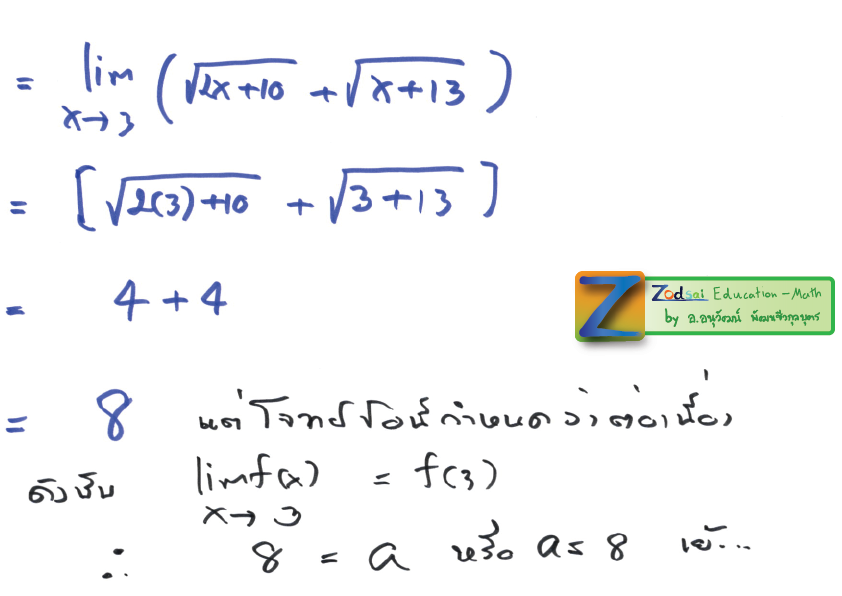 = lim x→3 (√(2x+10) + √(x+13))
= [√(2(3)+10) + √(3+13)]
= 4 + 4
Zodsai Education - Math
by อ.อนุวัฒน์ พัฒนชีวกุลบุตร
= 8 แต่โจทย์ข้อนี้กำหนดว่าต่อเนื่อง
ดังนั้น lim f(x) = f(3)
x→3
∴ 8 = a หรือ a = 8 เย้...